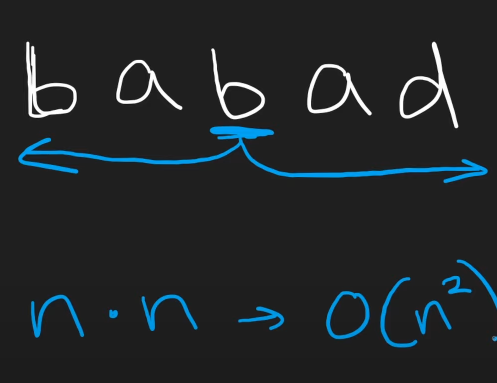 babad
n · n → O(n²)